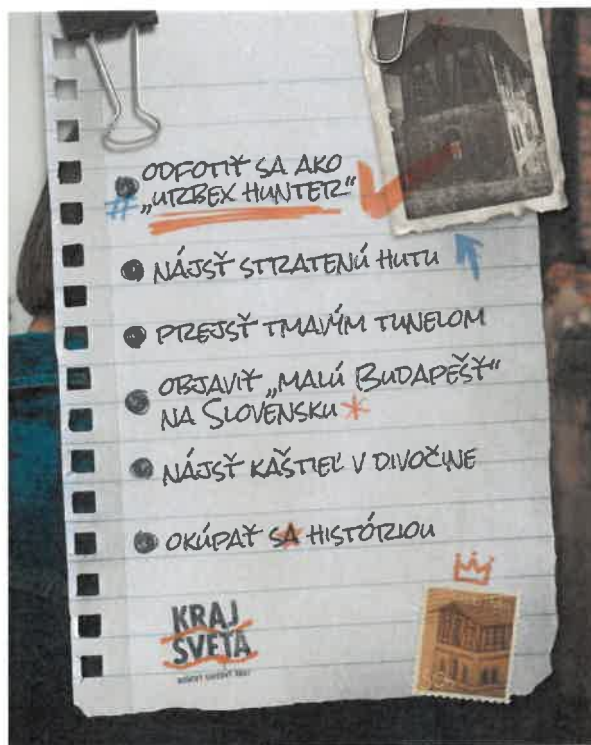 ODFOTIŤ SA AKO
# „URBEX HUNTER“
NÁJSŤ STRATENÚ HUTU
PREJSŤ TMAVÝM TUNELOM
OBJAVIŤ „MALÚ BUDAPEŠŤ“
NA SLOVENSKU *
NÁJSŤ KAŠTIEĽ V DIVOČINE
OKÚPAŤ SA HISTÓRIOU
KRAJ
SVETA